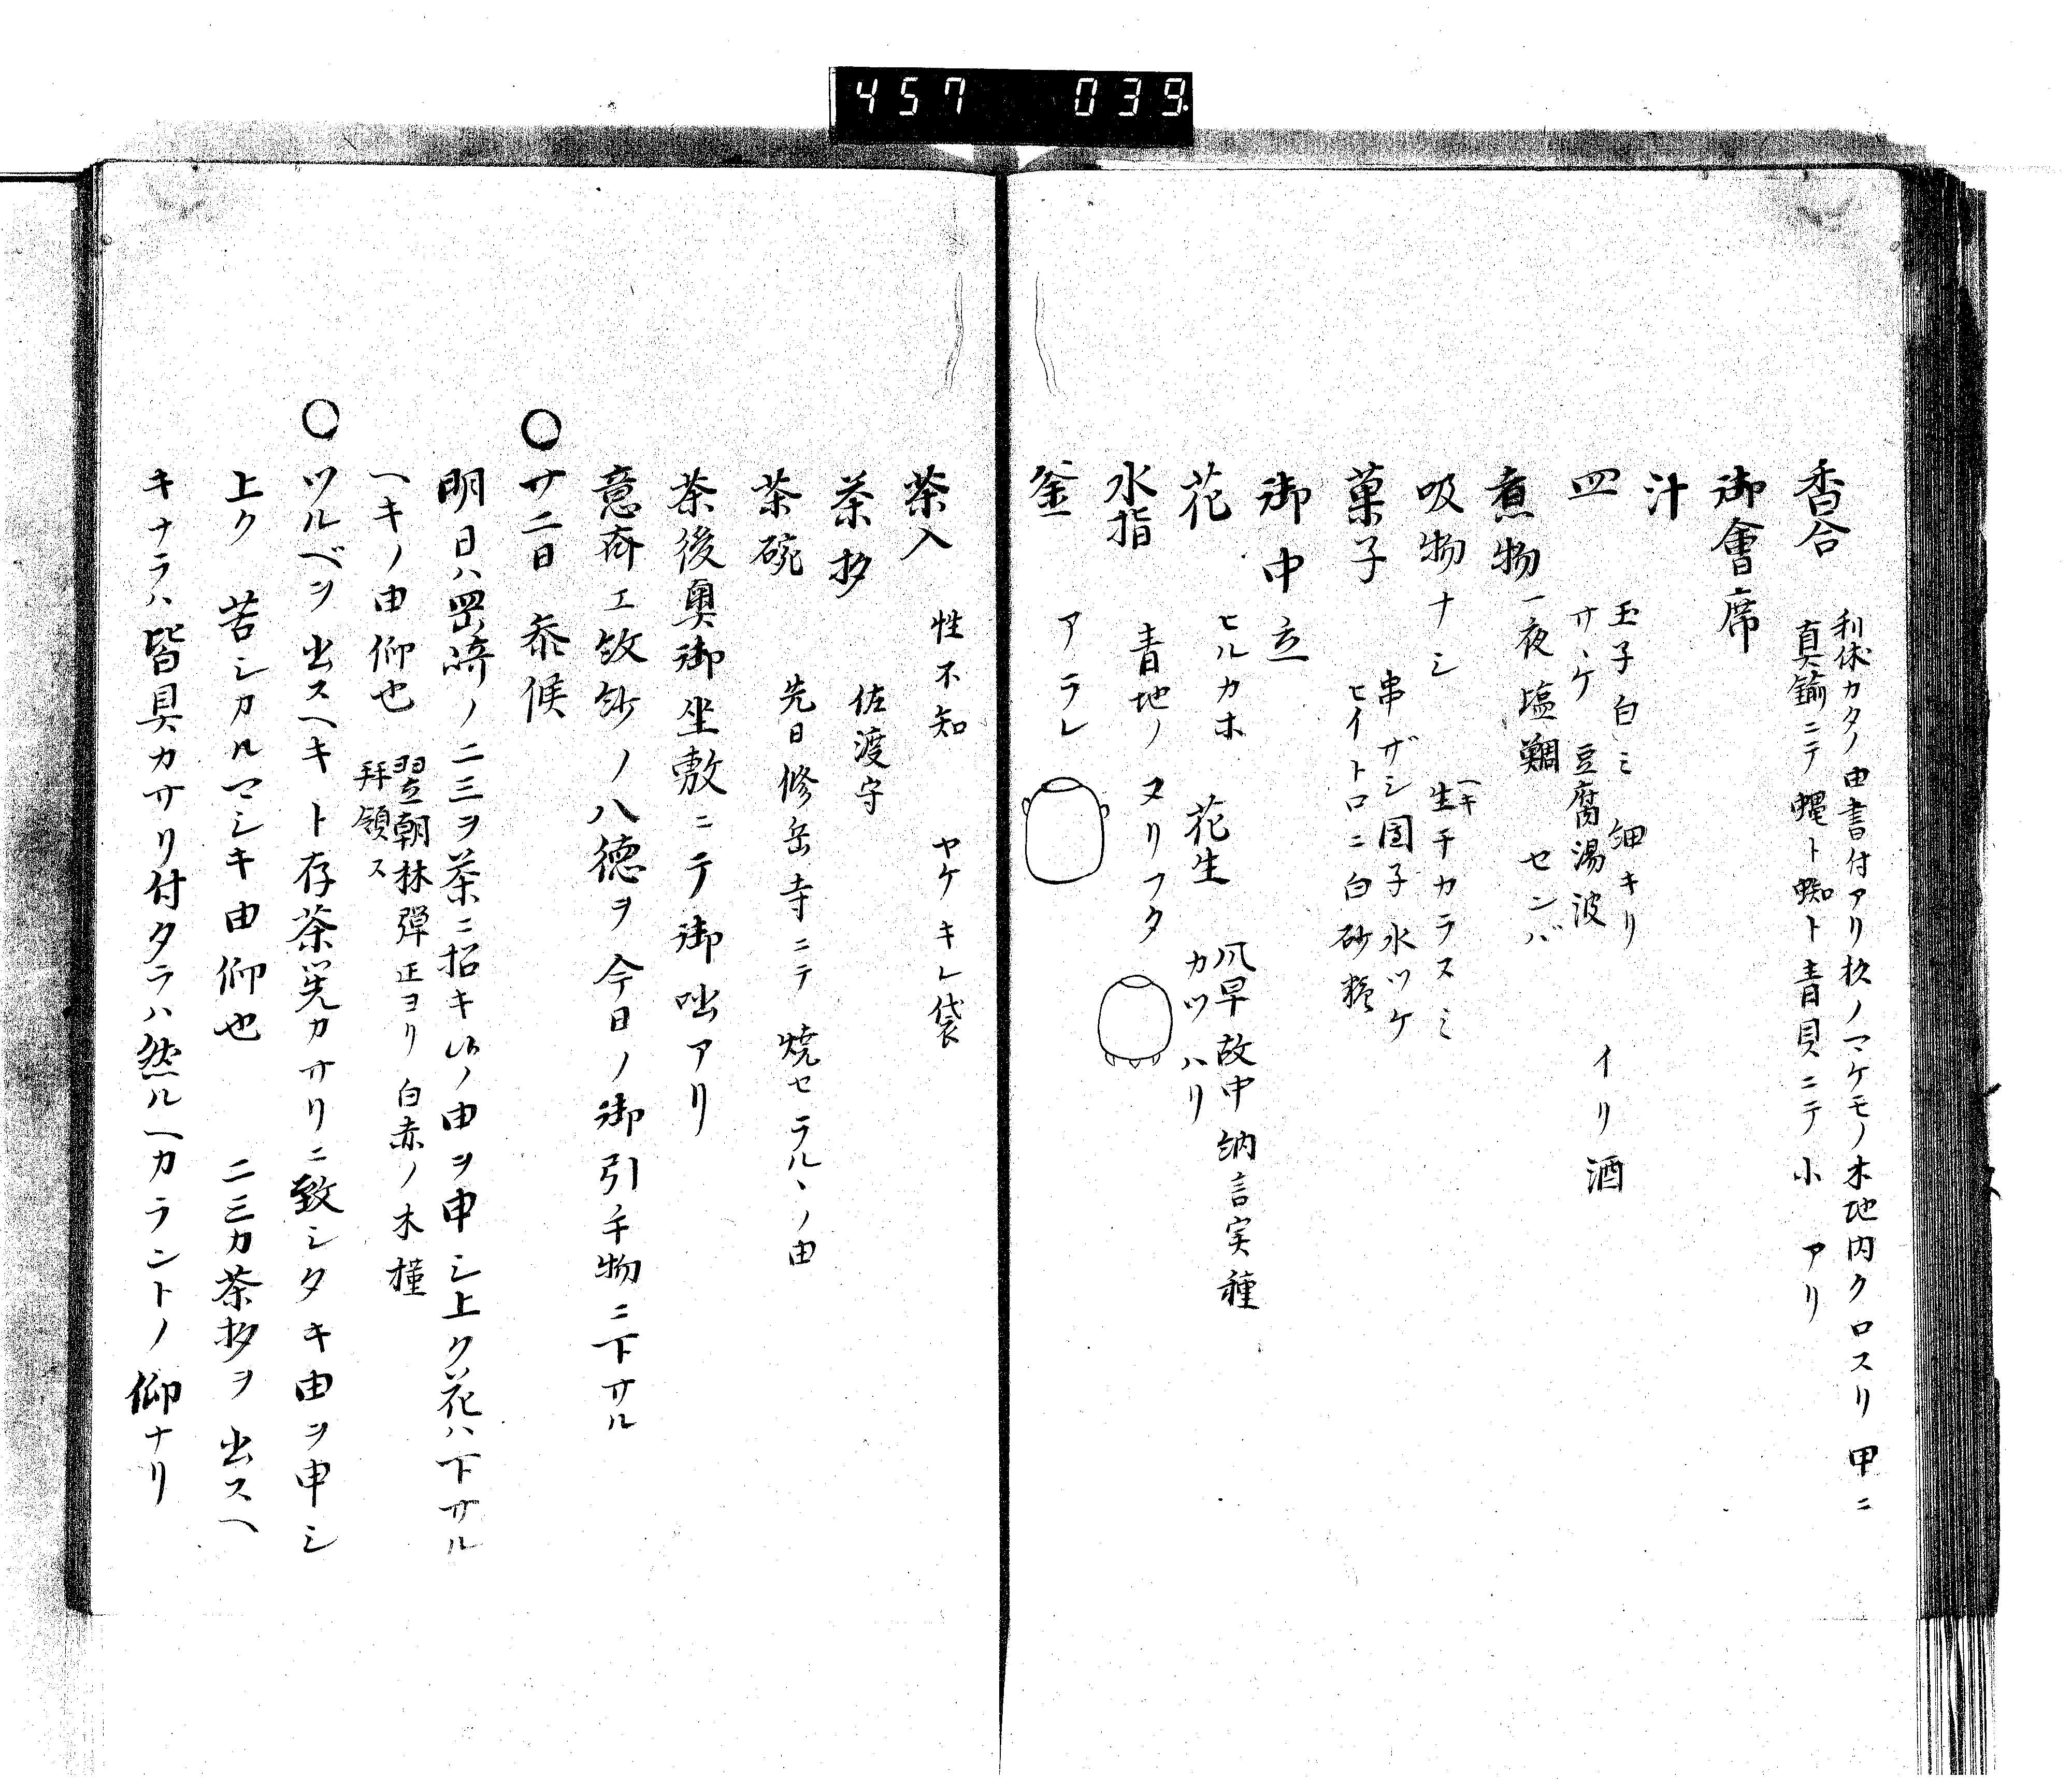 457 039
香合 利休カタノ由書付アリ 杉ノマケモノ木地内クロスリ 甲ニ
真鍮ニテ 蠅ト蜘ト青貝ニテ 小 アリ
御會席
汁
玉子白ミ 細キリ
皿 サヽケ 豆腐湯波 イリ酒
煮物 一夜塩鯛 センバ
吸物ナシ 生チカラスミ
ヘキ
菓子 串ザシ団子 水ツケ
ヒイトロニ白砂糖
御中立
花 ヒルカホ 花生 風早故中納言実種
カツハリ
水指 青地ノ ヌリフタ
釜 アラレ
茶入 性不知 ヤケキレ袋
茶杓 佐渡守
茶碗 先日修岳寺ニテ 焼セラルヽノ由
茶後奥御坐敷ニテ御咄アリ
意斎エ紋紗ノ八徳ヲ今日ノ御引手物ニ下サル
○ 廿二日 参候
明日ハ岡崎ノ二三ヲ茶ニ招キ候ノ由ヲ申シ上ク花ハ下サル
ヘキノ由仰也 翌朝林弾正ヨリ 白赤ノ木槿
拝領ス
○ ツルベヲ出スヘキト存茶筅カサリニ致シタキ由ヲ申シ
上ク 苦シカルマシキ由仰也 二三カ茶杓ヲ出スヘ
キナラハ皆具カサリ付タラハ然ルヘカラントノ仰ナリ